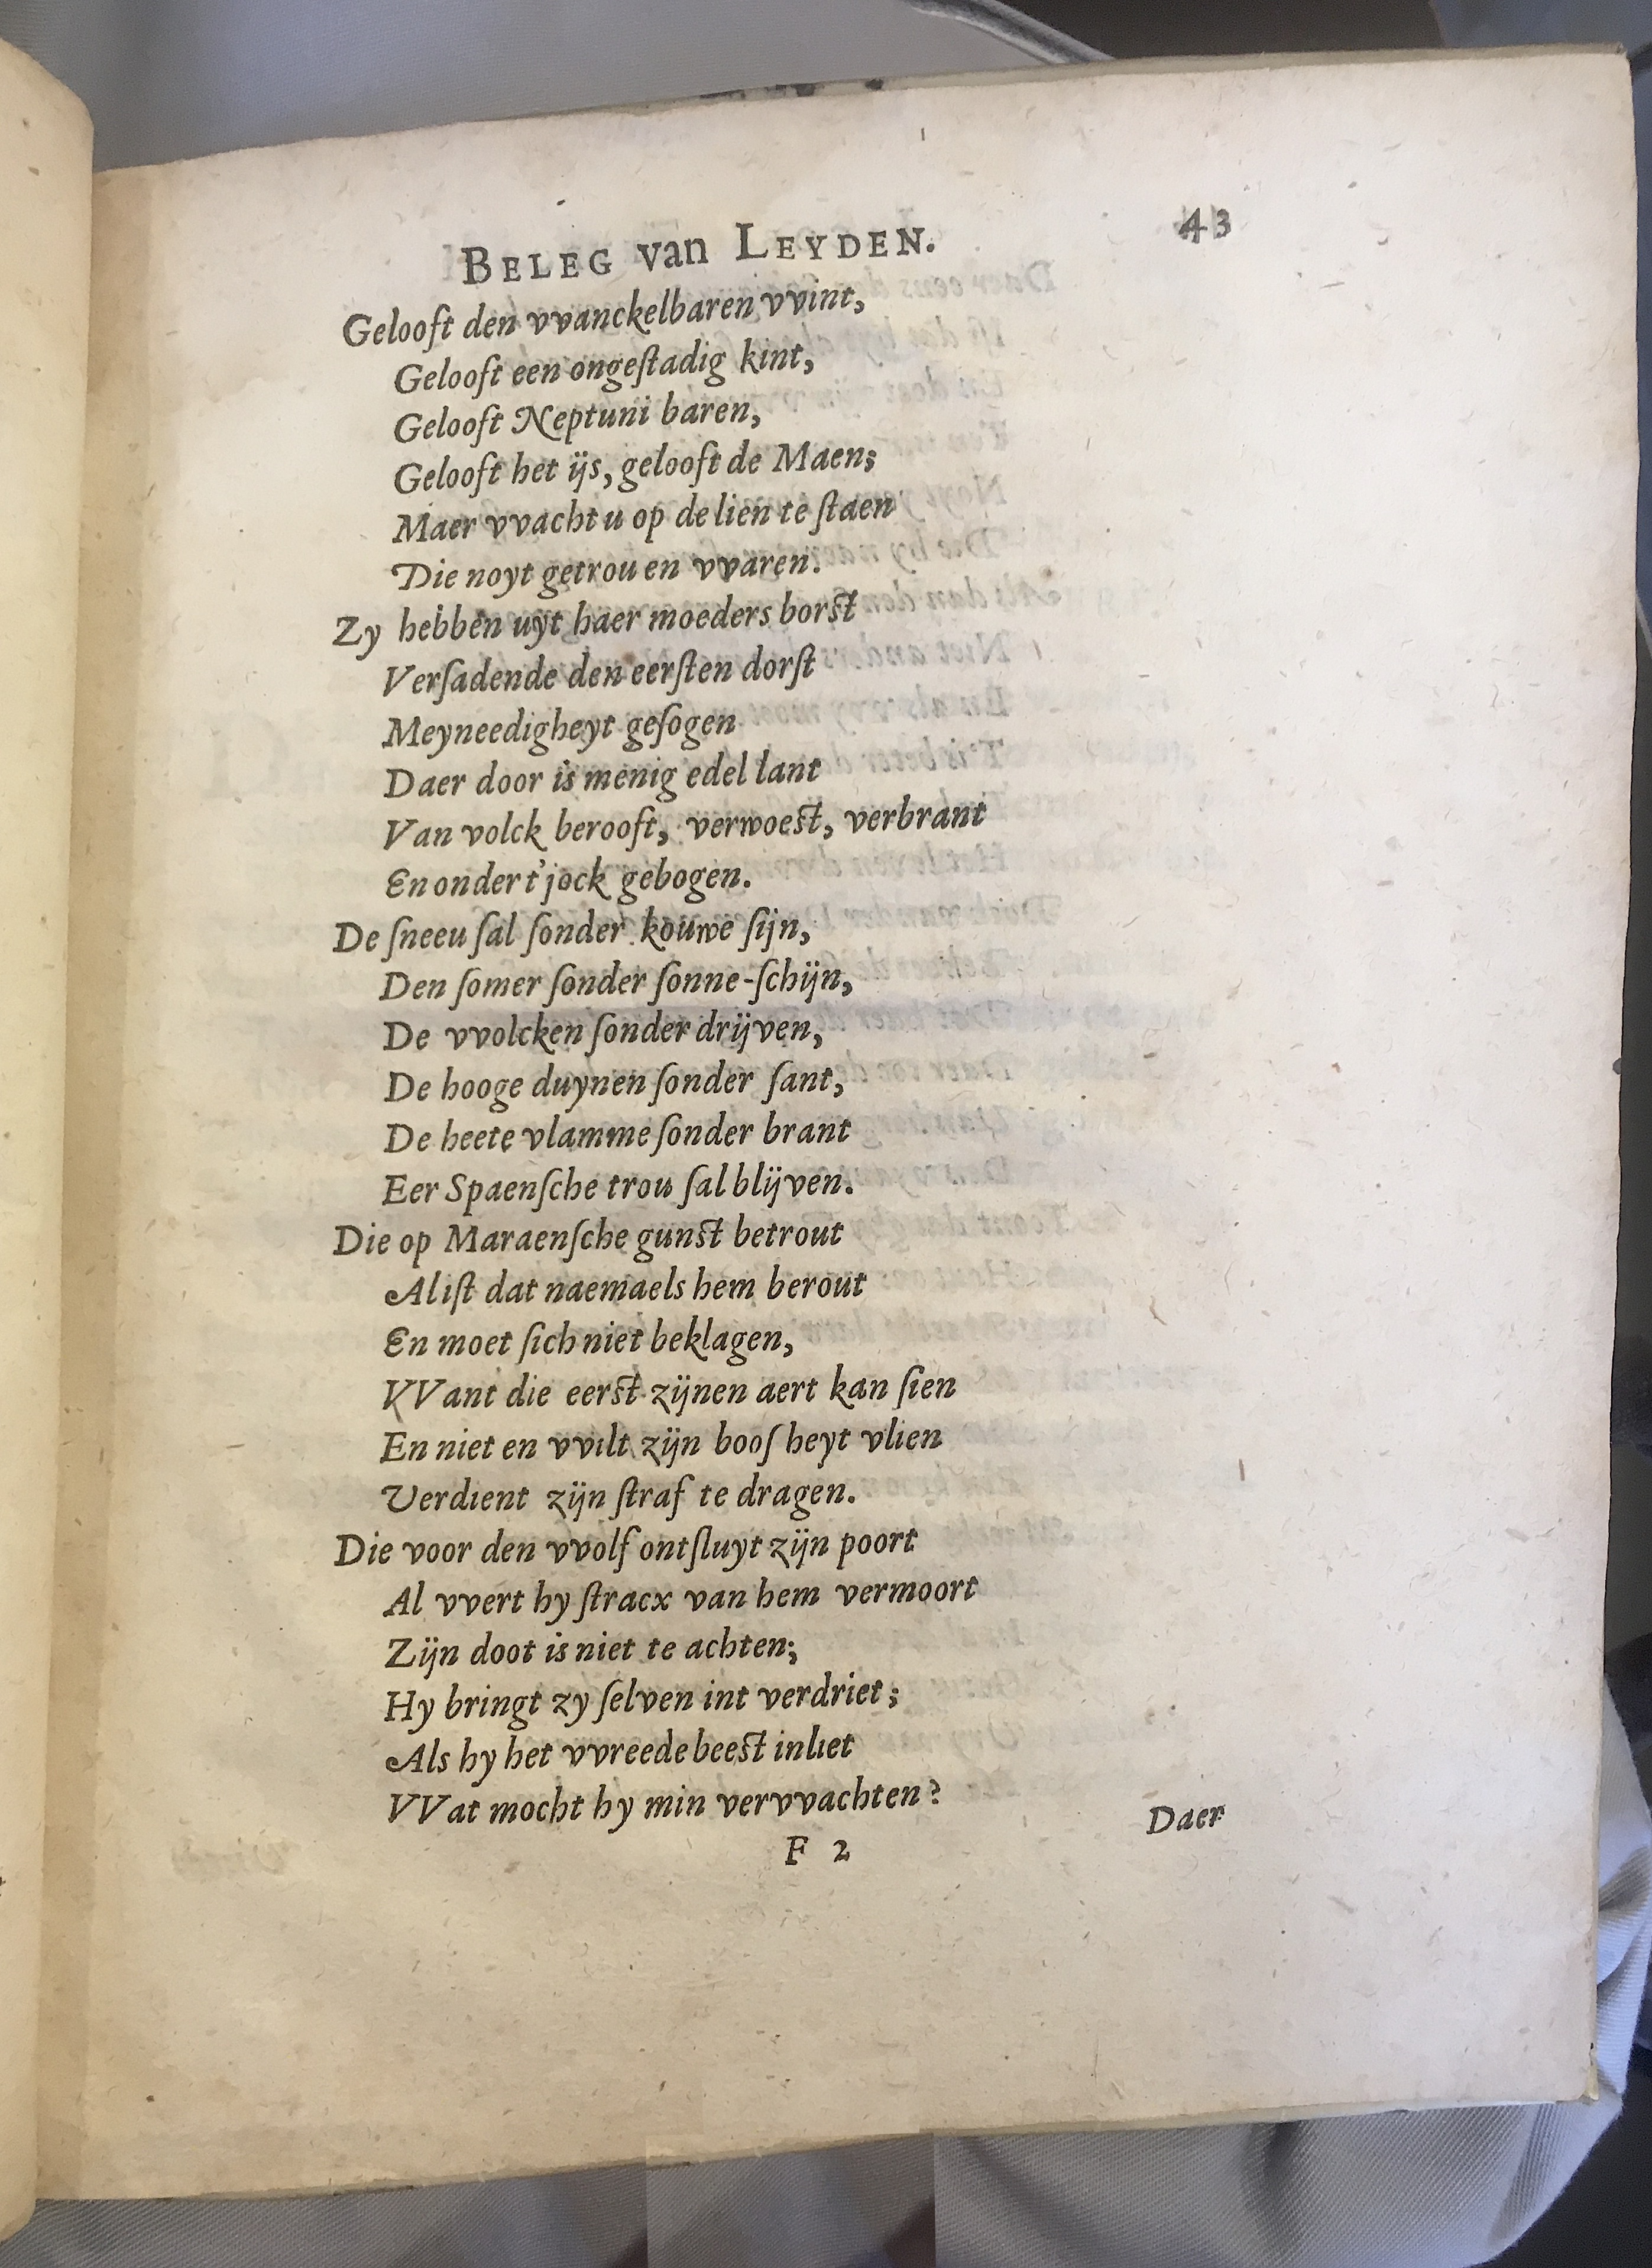 BELEG van LEYDEN. 43
Gelooft den vvanckelbaren vvint,
Gelooft een ongeſtadig kint,
Gelooft Neptuni baren,
Gelooft het ijs, gelooft de Maen;
Maer vvacht u op de lien te ſtaen
Die noyt getrou en vvaren.
Zy hebben uyt haer moeders borst
Verſadende den eerſten dorſt
Meyneedigheyt geſogen
Daer door is menig edel lant
Van volck berooft, verwoest, verbrant
En onder t'jock gebogen.
De ſneeu ſal ſonder kouwe ſijn,
Den ſomer ſonder ſonne-ſchijn,
De vvolcken ſonder drijven,
De hooge duynen ſonder ſant,
De heete vlamme ſonder brant
Eer Spaenſche trou ſal blijven.
Die op Maraenſche gunst betrout
Al iſt dat naemaels hem berout
En moet ſich niet beklagen,
VVant die eerst zijnen aert kan ſien
En niet en vvilt zijn booſheyt vlien
Verdient zijn ſtraf te dragen.
Die voor den vvolf ontſluyt zijn poort
Al vvert hy ſtracx van hem vermoort
Zijn doot is niet te achten;
Hy bringt zy ſelven int verdriet;
Als hy het vvreede beest inliet
VVat mocht hy min vervvachten?
F 2 Daer